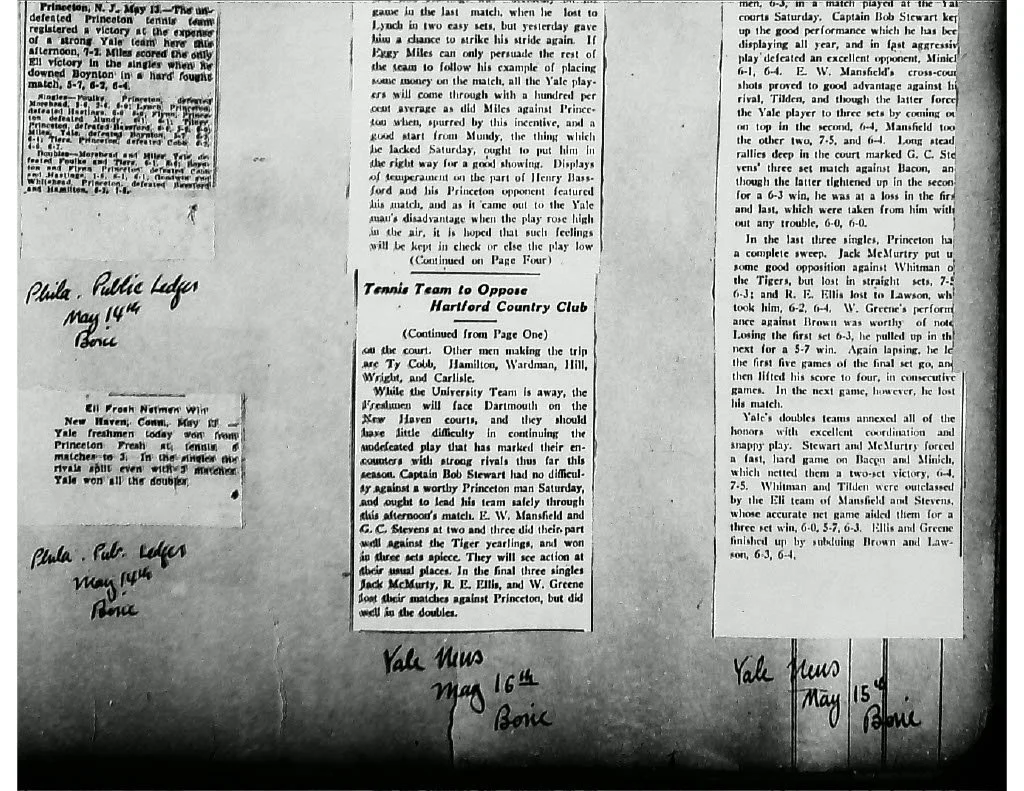 Princeton, N. J., May 13.—The un-
defeated Princeton tennis team
registered a victory at the expense
of a strong Yale team here this
afternoon, 7-2. Miles scored the only
Eli victory in the singles when he
downed Boynton in a hard fought
match, 5-7, 6-2, 6-4.
Singles—Foulke, Princeton, defeated
Princeton, defeated
Miles, Yale, defeated Boynton, 5-7, 6-2,
Doubles—Morehead and Miles, Yale, de-
feated Foulke and
Whitehead, Princeton, defeated
and Hamilton,
Phila. Public Ledger
May 14th
Borie
Eli Frosh Netmen Win
New Haven, Conn., May 13 —
Yale freshmen today won from
Princeton Fresh at tennis, 6
matches to 3. In the singles the
rivals split even with 3 matches.
Yale won all the doubles.
Phila. Pub. Ledger
May 14th
Borie
game in the last match, when he lost to
Lynch in two easy sets, but yesterday gave
him a chance to strike his stride again. If
Eggy Miles can only persuade the rest of
the team to follow his example of placing
some money on the match, all the Yale play-
ers will come through with a hundred per
cent average as did Miles against Prince-
ton when, spurred by this incentive, and a
good start from Mundy, the thing which
he lacked Saturday, ought to put him in
the right way for a good showing. Displays
of temperament on the part of Henry Bass-
ford and his Princeton opponent featured
his match, and as it came out to the Yale
man's disadvantage when the play rose high
in the air, it is hoped that such feelings
will be kept in check or else the play low
(Continued on Page Four)
Tennis Team to Oppose
Hartford Country Club
(Continued from Page One)
on the court. Other men making the trip
are Ty Cobb, Hamilton, Wardman, Hill,
Wright, and Carlisle.
While the University Team is away, the
Freshmen will face Dartmouth on the
New Haven courts, and they should
have little difficulty in continuing the
undefeated play that has marked their en-
counters with strong rivals thus far this
season. Captain Bob Stewart had no difficul-
ty against a worthy Princeton man Saturday,
and ought to lead his team safely through
this afternoon's match. E. W. Mansfield and
G. C. Stevens at two and three did their part
well against the Tiger yearlings, and won
in three sets apiece. They will see action at
their usual places. In the final three singles
Jack McMurty, R. E. Ellis, and W. Greene
lost their matches against Princeton, but did
well in the doubles.
Yale News
May 16th
Borie
men, 6-3, in a match played at the Yal
courts Saturday. Captain Bob Stewart kep
up the good performance which he has bee
displaying all year, and in fast aggressiv
play defeated an excellent opponent, Minicl
6-1, 6-4. E. W. Mansfield's cross-cour
shots proved to good advantage against hi
rival, Tilden, and though the latter force
the Yale player to three sets by coming ou
on top in the second, 6-4, Mansfield too
the other two, 7-5, and 6-4. Long stead
rallies deep in the court marked G. C. Ste
vens' three set match against Bacon, an
though the latter tightened up in the secon
for a 6-3 win, he was at a loss in the firs
and last, which were taken from him with
out any trouble, 6-0, 6-0.
In the last three singles, Princeton ha
a complete sweep. Jack McMurtry put u
some good opposition against Whitman o
the Tigers, but lost in straight sets, 7-5
6-3; and R. E. Ellis lost to Lawson, wh
took him, 6-2, 6-4. W. Greene's perform
ance against Brown was worthy of note
Losing the first set 6-3, he pulled up in th
next for a 5-7 win. Again lapsing, he le
the first five games of the final set go, an
then lifted his score to four, in consecutive
games. In the next game, however, he lost
his match.
Yale's doubles teams annexed all of the
honors with excellent coordination and
snappy play. Stewart and McMurtry forced
a fast, hard game on Bacon and Minich,
which netted them a two-set victory, 6-4,
7-5. Whitman and Tilden were outclassed
by the Eli team of Mansfield and Stevens,
whose accurate net game aided them for a
three set win, 6-0, 5-7, 6-3. Ellis and Greene
finished up by subduing Brown and Law-
son, 6-3, 6-4.
Yale News
May 15th
Borie